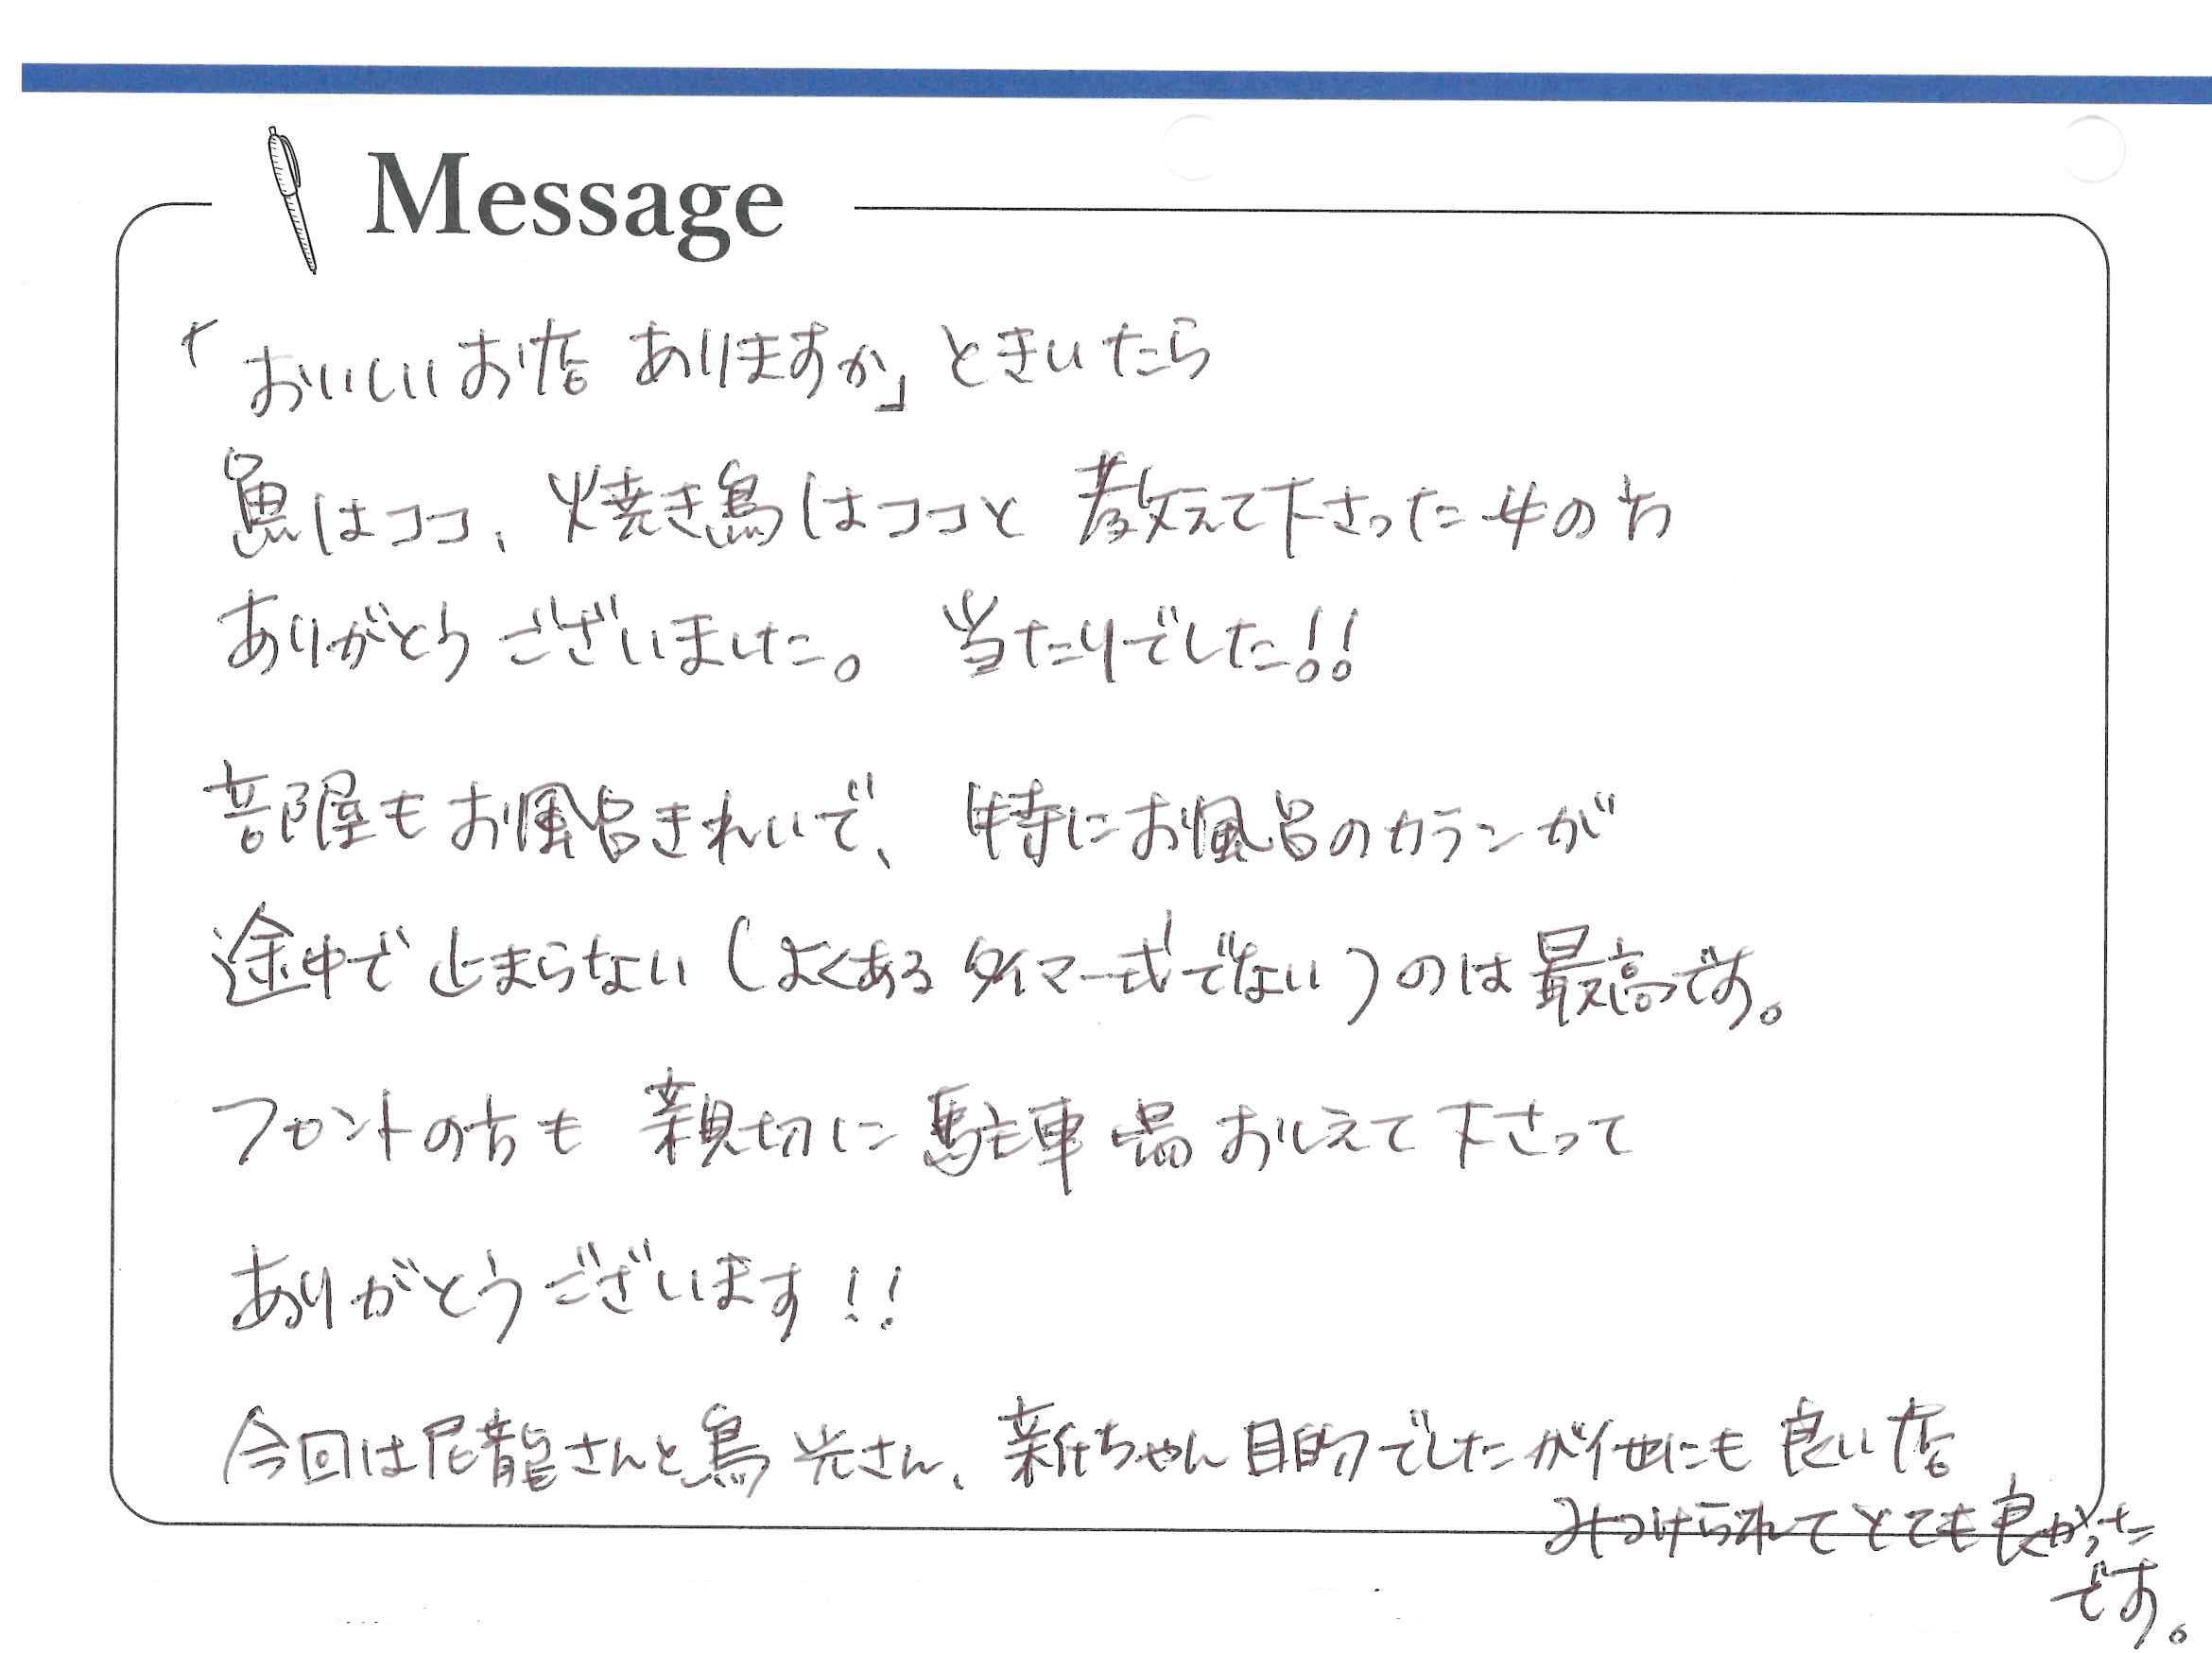 Message
「おいしいお店 ありますか」ときいたら
魚はココ、焼き鳥はココと 教えて下さった女の方
ありがとうございました。 当たりでした!!
部屋もお風呂きれいで、 特にお風呂のカランが
途中で止まらない(よくあるタイマー式でない)のは最高です。
フロントの方も 親切に駐車場おしえて下さって
ありがとうございます!!
今回は尼龍さんと鳥光さん、新ちゃん目的でしたが他にも良い店
みつけられてとても良かった
です。